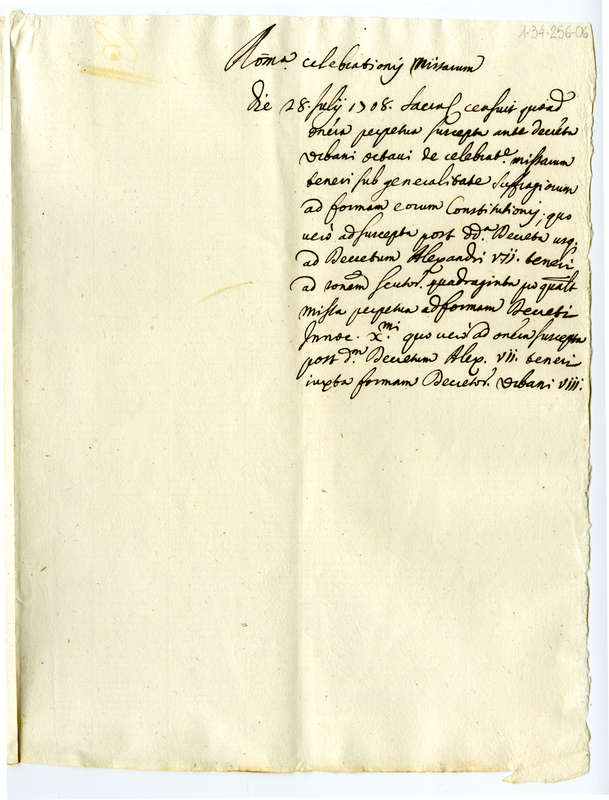 1-34-256-06
Romã. celebrationis Missarum
Die 28. Julij 1708. Sacra C. censuit quoad
onera perpetua suscepta ante decreta
Urbani octaui de celebrat.e missarum
teneri sub generalitate suffragiorum
ad formam eorum Constitutionis, quo
uero ad suscepta post dd.a Decreta usq;
ad Decretum Alexandri VII. teneri
ad ronem scutor. quadraginta pro qualt
missa perpetua ad formam Decreti
Innoc. X.mi quo uero ad onera suscepta
post d.m Decretum Alex. VII. teneri
iuxta formam Decretor. Urbani VIII.